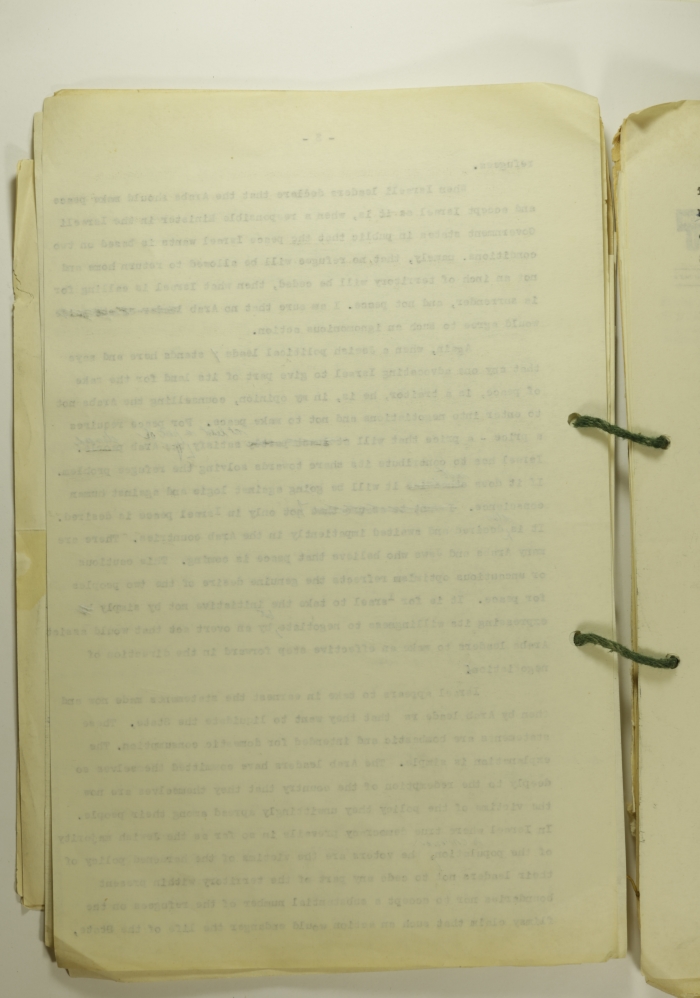 - 2 -
refugees.
When Israeli leaders declare that the Arabs should make peace
and accept Israel as it is, when a responsible Minister in the Israeli
Government states in public that the peace Israel wants is based on two
conditions, namely, that no refugee will be allowed to return home and
not an inch of territory will be ceded, then what Israel is asking for
is surrender, and not peace. I am sure that no Arab leader
would agree to such an ignominious action.
Again, when a Jewish political leader stands here and says
that any one advocating Israel to give part of its land for the sake
of peace, is a traitor, he is, in my opinion, counselling the Arabs not
to enter into negotiations and not to make peace. For peace requires
a price - a price that will
Israel has to contribute its share towards solving the refugee problem.
If it does it will be going against logic and against human
experience. not only in Israel peace is desired.
It is desired and awaited impatiently in the Arab countries. There are
many Arabs and Jews who believe that peace is coming. This cautious
or unconscious optimism reflects the genuine desire of the two peoples
for peace. It is for Israel to take the initiative not by simply
expressing its willingness to negotiate by an overt act that would assist
Arab leaders to make an effective step forward in the direction of
negotiations
Israel appears to take in earnest the statements made now and
then by Arab leaders that they want to liquidate the State. These
statements are bombastic and intended for domestic consumption. The
explanation is simple. The Arab leaders have committed themselves so
deeply to the redemption of the country that they themselves are now
the victims of the policy they unwittingly spread among their people.
In Israel where true democracy prevails in so far as the Jewish majority
of the population, the voters are the victims of the declared policy of
their leaders not to cede any part of the territory within present
boundaries nor to accept a substantial number of the refugees on the
flimsy claim that such an action would endanger the life of the State,